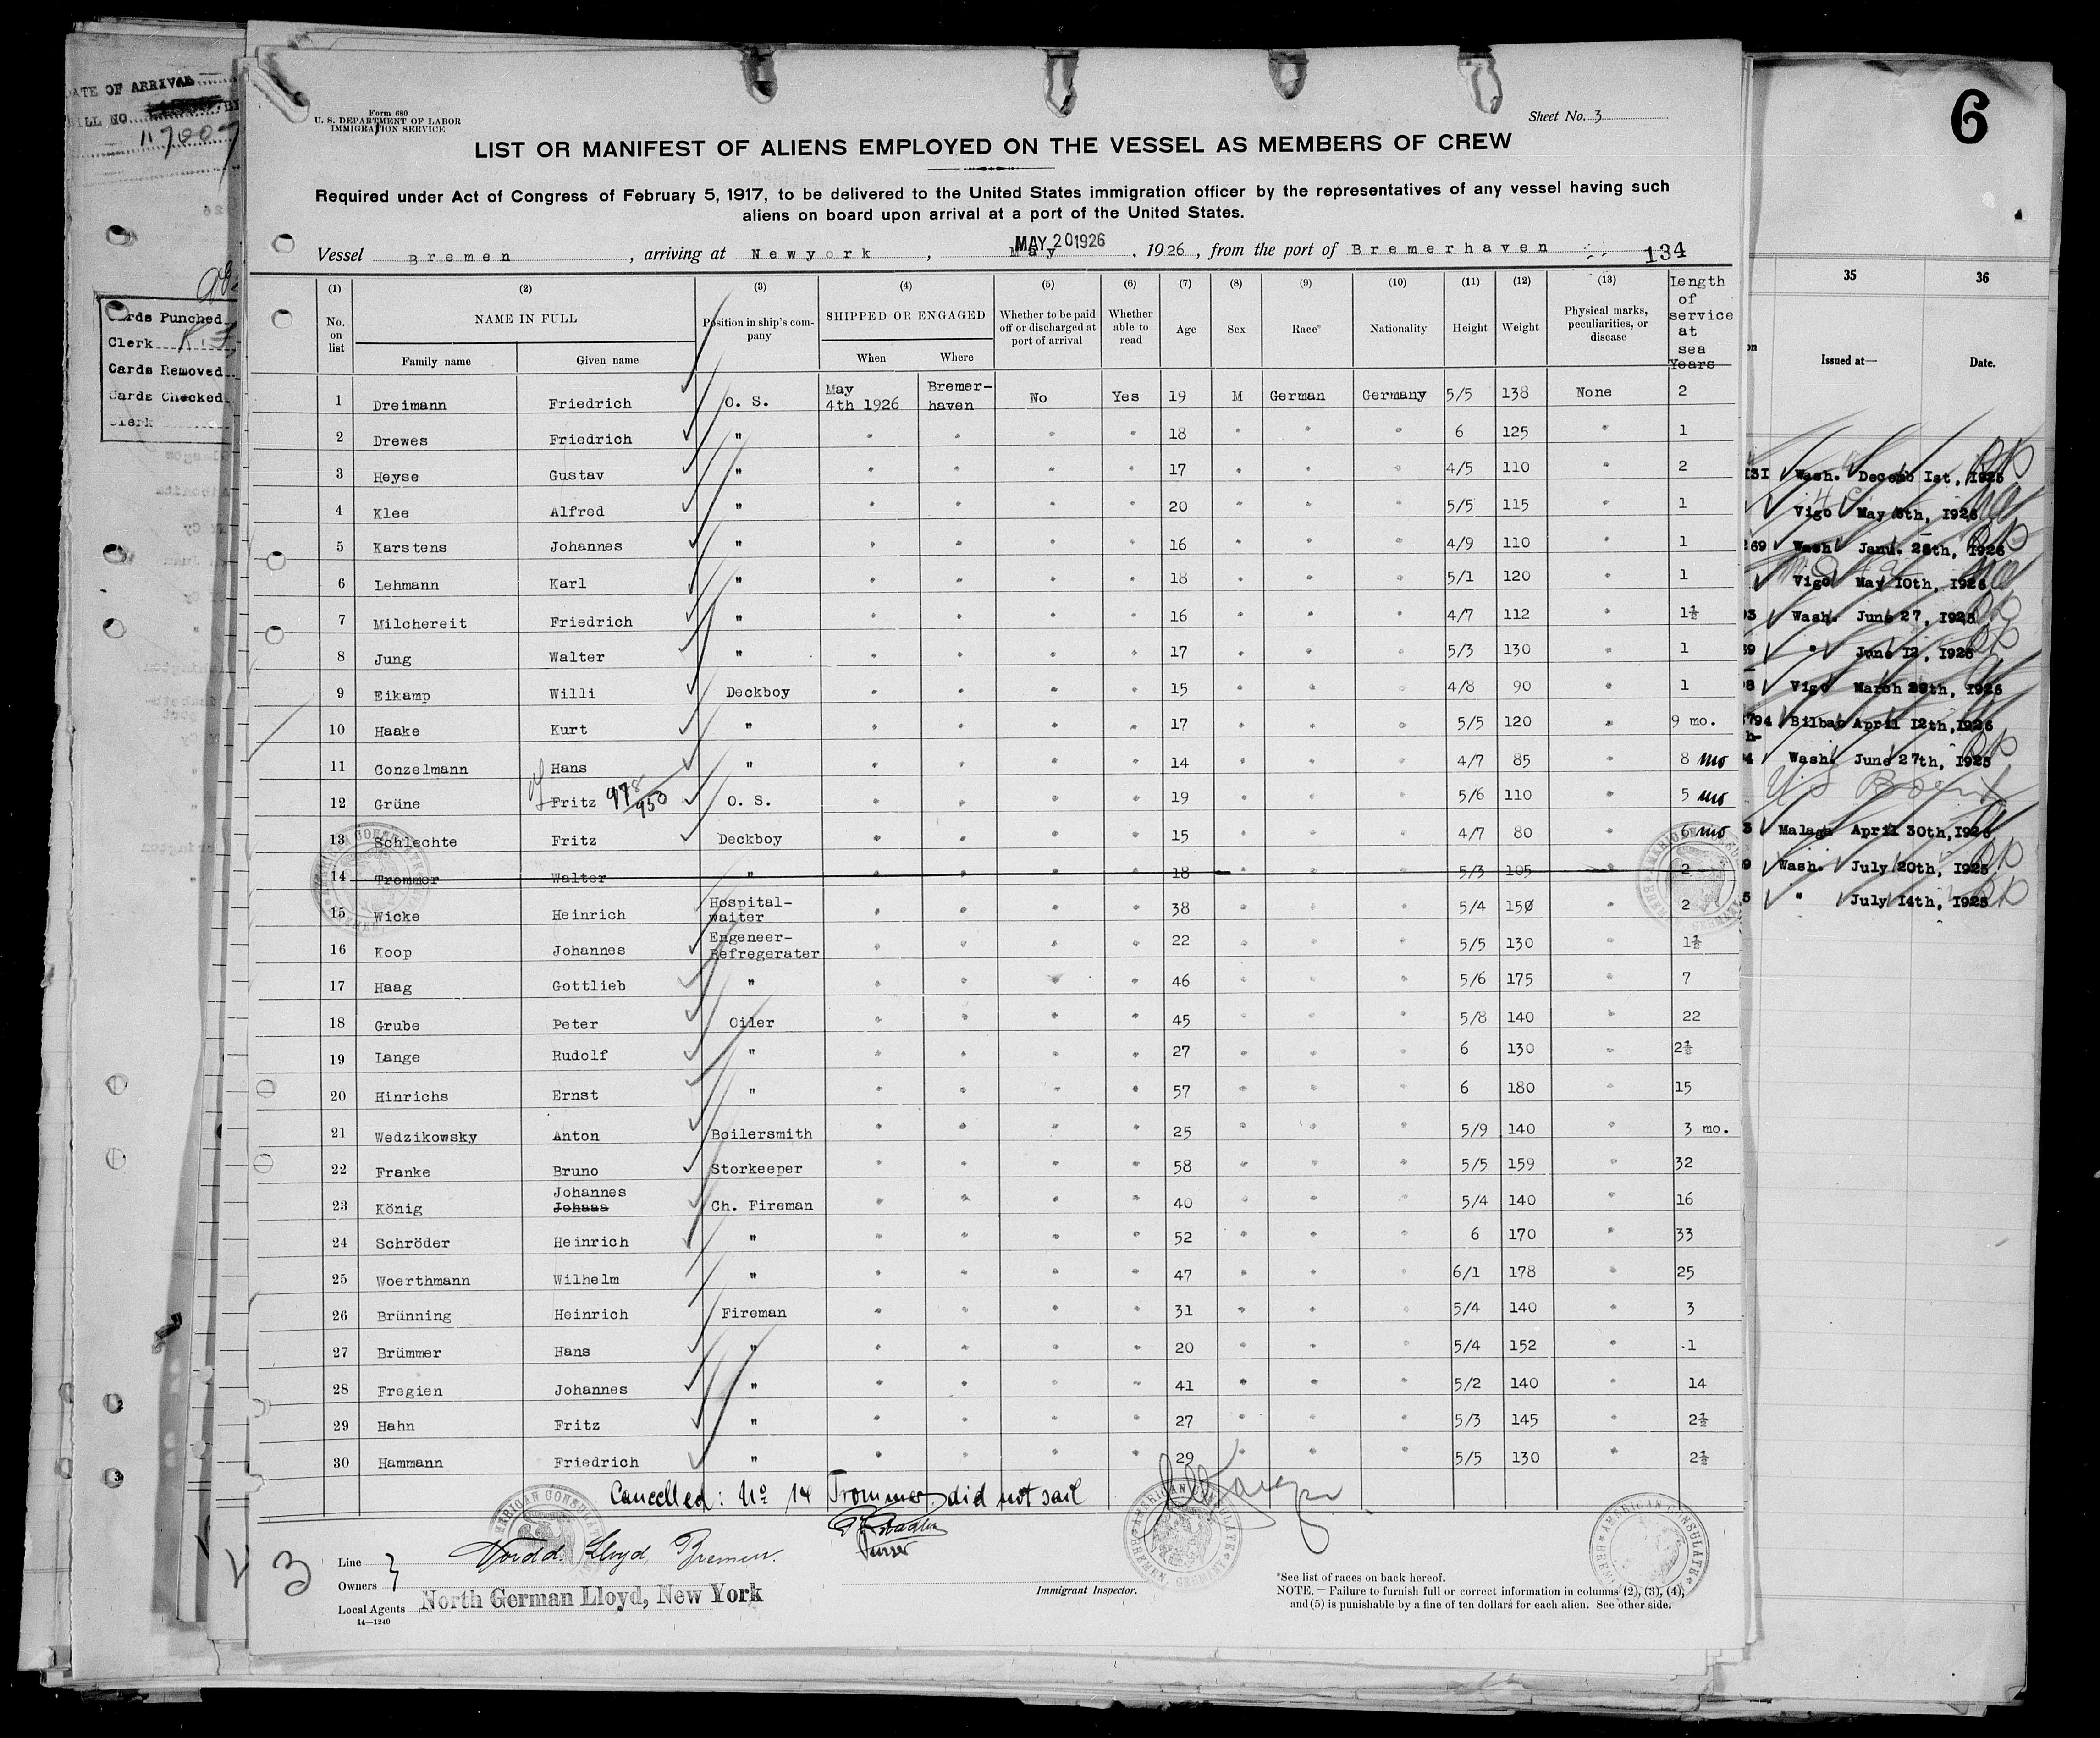 Form 680
U. S. DEPARTMENT OF LABOR
IMMIGRATION SERVICE
Sheet No. 3
LIST OR MANIFEST OF ALIENS EMPLOYED ON THE VESSEL AS MEMBERS OF CREW
Required under Act of Congress of February 5, 1917, to be delivered to the United States immigration officer by the representatives of any vessel having such
aliens on board upon arrival at a port of the United States.
Vessel Bremen, arriving at Newyork, May MAY 20 1926, 1926, from the port of Bremerhaven 134
(1) (2) (3) (4) (5) (6) (7) (8) (9) (10) (11) (12) (13)
No. on list NAME IN FULL Position in ship's company SHIPPED OR ENGAGED Whether to be paid off or discharged at port of arrival Whether able to read Age Sex Race* Nationality Height Weight Physical marks, peculiarities, or disease length of service at sea Years
Family name Given name When Where
1 Dreimann Friedrich O. S. May 4th 1926 Bremer-haven No Yes 19 M German Germany 5/5 138 None 2
2 Drewes Friedrich " " " " " 18 " " " 6 125 " 1
3 Heyse Gustav " " " " " 17 " " " 4/5 110 " 2
4 Klee Alfred " " " " " 20 " " " 5/5 115 " 1
5 Karstens Johannes " " " " " 16 " " " 4/9 110 " 1
6 Lehmann Karl " " " " " 18 " " " 5/1 120 " 1
7 Milchereit Friedrich " " " " " 16 " " " 4/7 112 " 1½
8 Jung Walter " " " " " 17 " " " 5/3 130 " 1
9 Eikamp Willi Deckboy " " " " 15 " " " 4/8 90 " 1
10 Haake Kurt " " " " " 17 " " " 5/5 120 " 9 mo.
11 Conzelmann Hans " " " " " 14 " " " 4/7 85 " 8 mo
12 Grüne Fritz 978/953 O. S. " " " " 19 " " " 5/6 110 " 5 mo
13 Schlechte Fritz Deckboy " " " " 15 " " " 4/7 80 " 6 mo
14 Trommer Walter " " " " " 18 " " " 5/3 105 " 2
15 Wicke Heinrich Hospital-waiter " " " " 38 " " " 5/4 150 " 2
16 Koop Johannes Engeneer-Refregerater " " " " 22 " " " 5/5 130 " 1½
17 Haag Gottlieb " " " " " 46 " " " 5/6 175 " 7
18 Grube Peter Oiler " " " " 45 " " " 5/8 140 " 22
19 Lange Rudolf " " " " " 27 " " " 6 130 " 2½
20 Hinrichs Ernst " " " " " 57 " " " 6 180 " 15
21 Wedzikowsky Anton Boilersmith " " " " 25 " " " 5/9 140 " 3 mo.
22 Franke Bruno Storkeeper " " " " 58 " " " 5/5 159 " 32
23 König Johannes Johaaa Ch. Fireman " " " " 40 " " " 5/4 140 " 16
24 Schröder Heinrich " " " " " 52 " " " 6 170 " 33
25 Woerthmann Wilhelm " " " " " 47 " " " 6/1 178 " 25
26 Brünning Heinrich Fireman " " " " 31 " " " 5/4 140 " 3
27 Brümmer Hans " " " " " 20 " " " 5/4 152 " 1
28 Fregien Johannes " " " " " 41 " " " 5/2 140 " 14
29 Hahn Fritz " " " " " 27 " " " 5/3 145 " 2½
30 Hammann Friedrich " " " " " 29 " " " 5/5 130 " 2½
Cancelled: No 14 Trommer did not sail
Purser
3
Line Nordd. Lloyd, Bremen.
Owners
Local Agents North German Lloyd, New York
14—1240
Immigrant Inspector.
*See list of races on back hereof.
NOTE.—Failure to furnish full or correct information in columns (2), (3), (4),
and (5) is punishable by a fine of ten dollars for each alien. See other side.
AMERICAN CONSULATE
BREMEN, GERMANY
DATE OF ARRIVAL
117007
Cards Punched
Clerk
Cards Removed
Cards Checked
Clerk
6
35 36
Issued at— Date.
131 Wash. Decemb 1st, 1925
Vigo May 8th, 1926
269 Wash Janu. 28th, 1926
Vigo May 10th, 1926
93 Wash. June 27, 1925
39 " June 12, 1925
98 Vigo March 29th, 1926
794 Bilbao April 12th, 1926
4 Wash. June 27th, 1925
US Born
3 Malaga April 30th, 1926
9 Wash. July 20th, 1925
5 " July 14th, 1925